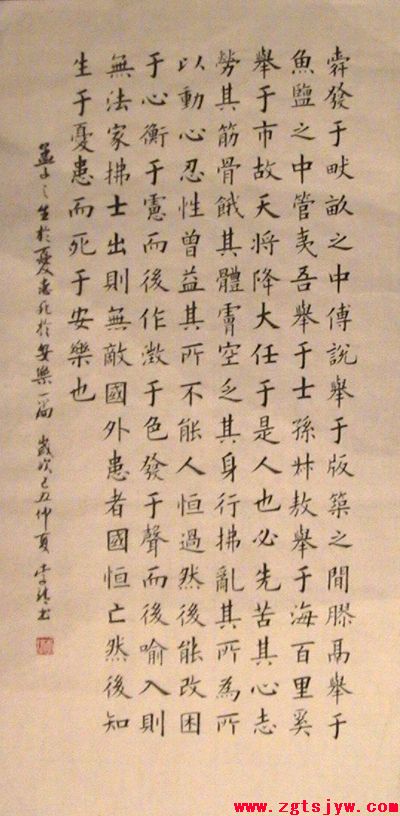 舜發于畎畝之中傅說舉于版築之間膠鬲舉于
魚鹽之中管夷吾舉于士孫叔敖舉于海百里奚
舉于市故天將降大任于是人也必先苦其心志
勞其筋骨餓其體膚空乏其身行拂亂其所為所
以動心忍性曾益其所不能人恒過然後能改困
于心衡于慮而後作徵于色發于聲而後喻入則
無法家拂士出則無敵國外患者國恒亡然後知
生于憂患而死于安樂也
孟子之生於憂患死於安樂一篇 歲次己丑仲夏 李书
www.zgtsjyw.com